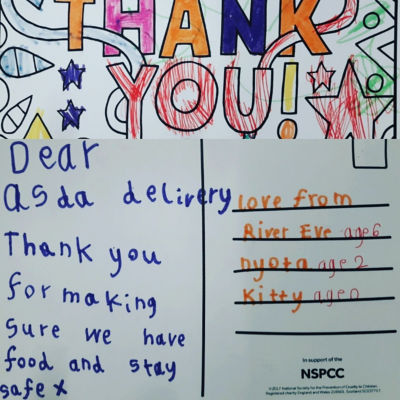 THANK
YOU!
Dear
asda delivery
Thank you
for making
Sure we have
food and stay
safe x
Love from
River Eve age 6
nyota age 2
Kitty age 0
In support of the
NSPCC
©2017 National Society for the Prevention of Cruelty to Children.
Registered charity England and Wales 216401. Scotland SC037717.